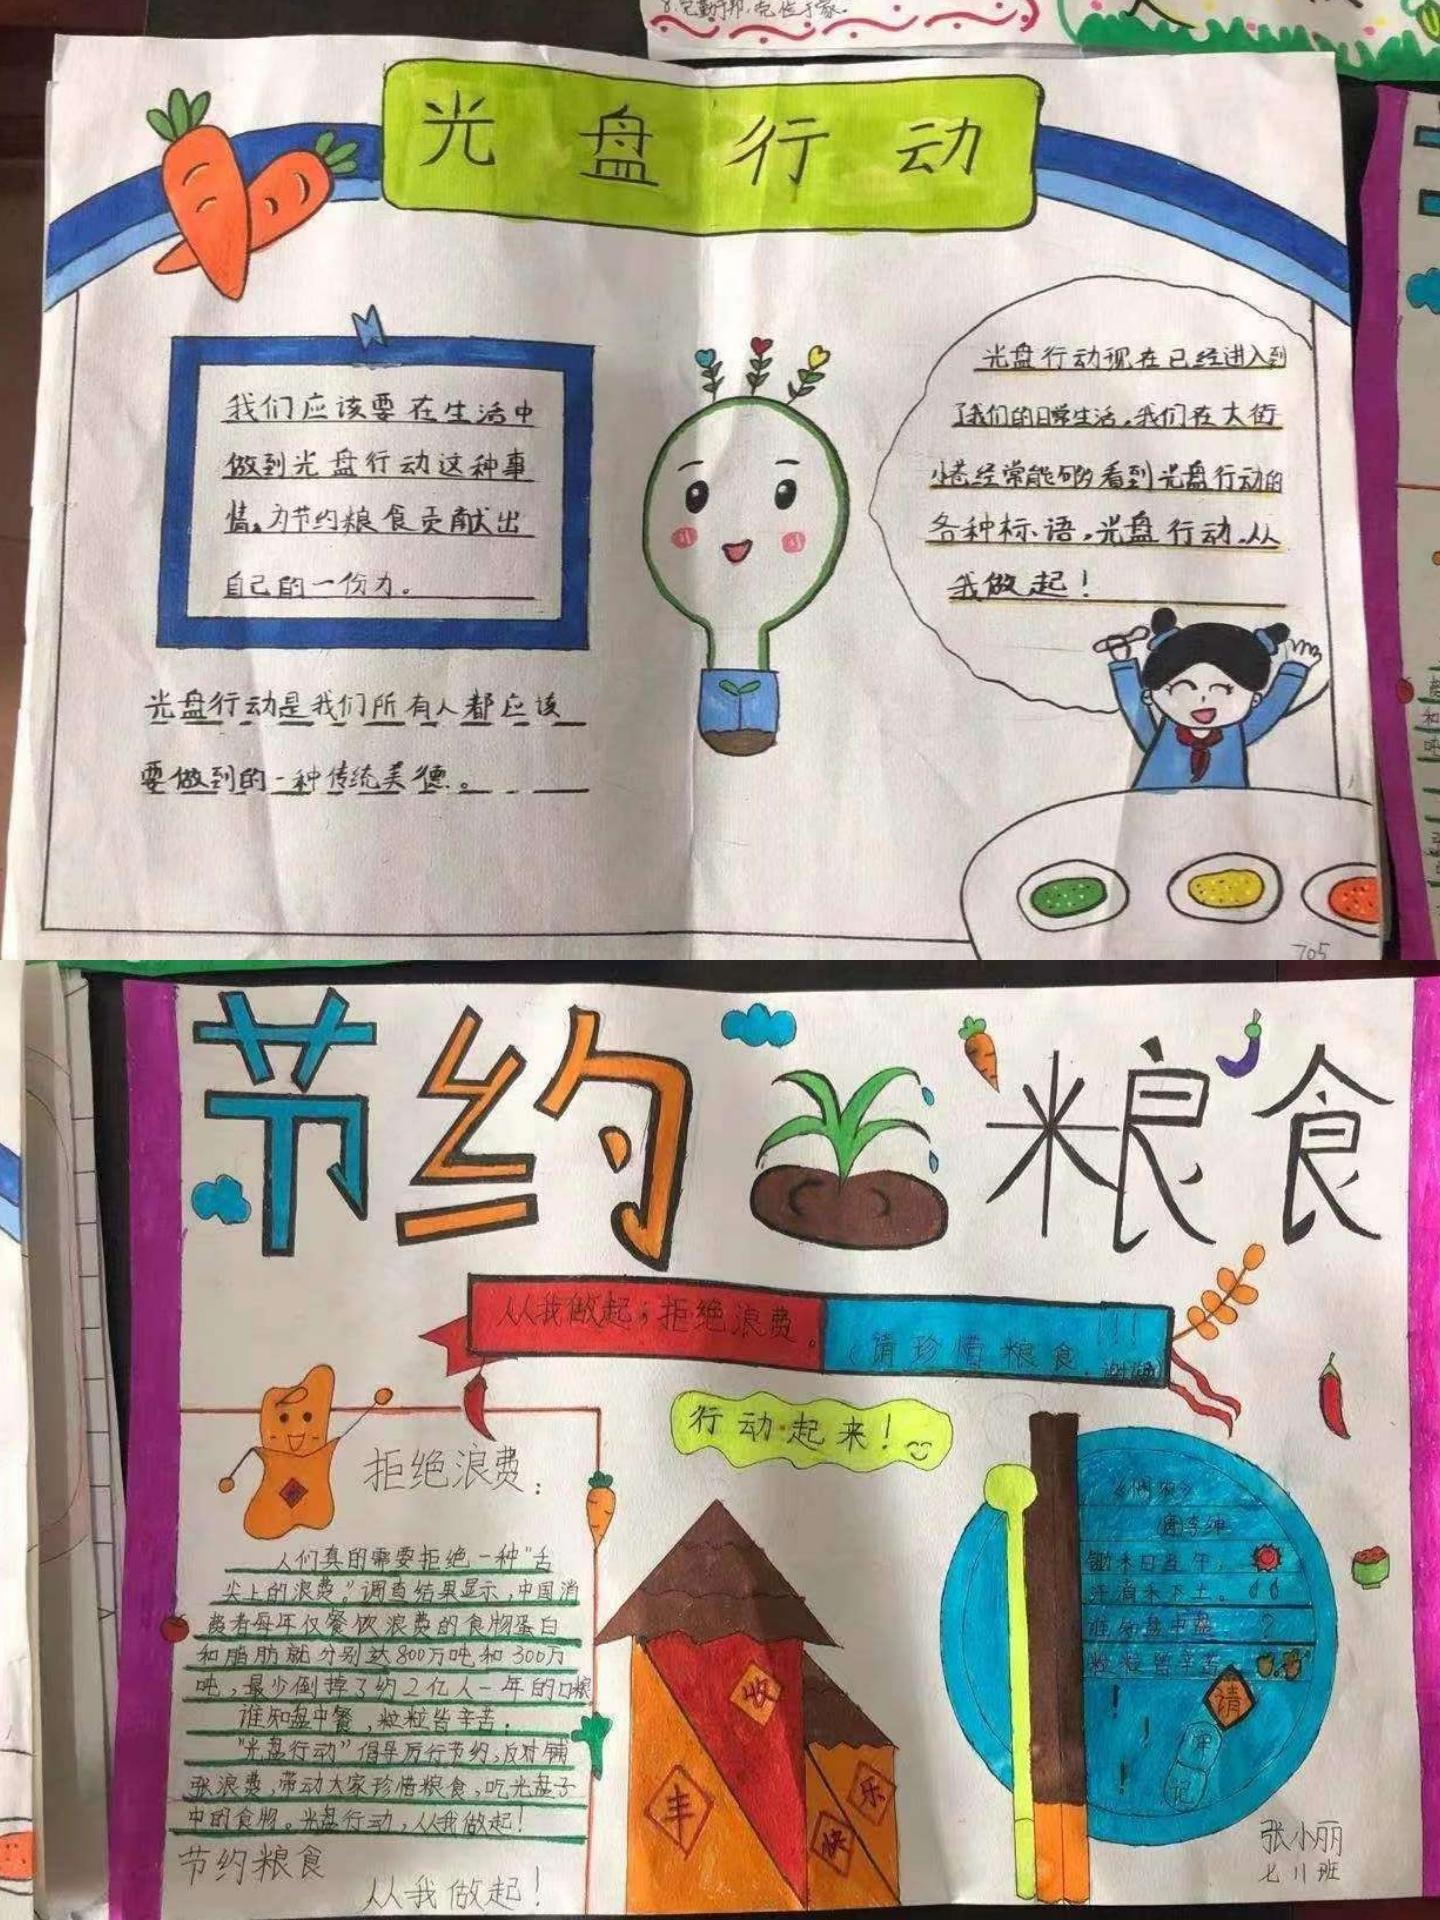 8.克勤于邦,克俭于家。
光盘行动
我们应该要在生活中
做到光盘行动这种事
情。为节约粮食贡献出
自己的一份力。
光盘行动是我们所有人都应该
要做到的一种传统美德。
光盘行动现在已经进入到
了我们的日常生活,我们在大街
小巷经常能够看到光盘行动的
各种标语,光盘行动,从
我做起!
705
节约粮食
从我做起,拒绝浪费。
请珍惜粮食
!!!
行动起来!
拒绝浪费:
人们真的需要拒绝一种“舌
尖上的浪费。”调查结果显示,中国消
费者每年仅餐饮浪费的食物蛋白
和脂肪就分别达800万吨和300万
吨,最少倒掉了约2亿人一年的口粮
谁知盘中餐,粒粒皆辛苦。
“光盘行动”倡导厉行节约,反对铺
张浪费,带动大家珍惜粮食,吃光盘子
中的食物。光盘行动,从我做起!
节约粮食
从我做起!
丰
收
快
乐
《悯农》
(唐)李绅
锄禾日当午,
汗滴禾下土。
谁知盘中
?
粒粒皆辛苦
!
!
!
!
请
牢
记
张小丽
七11班